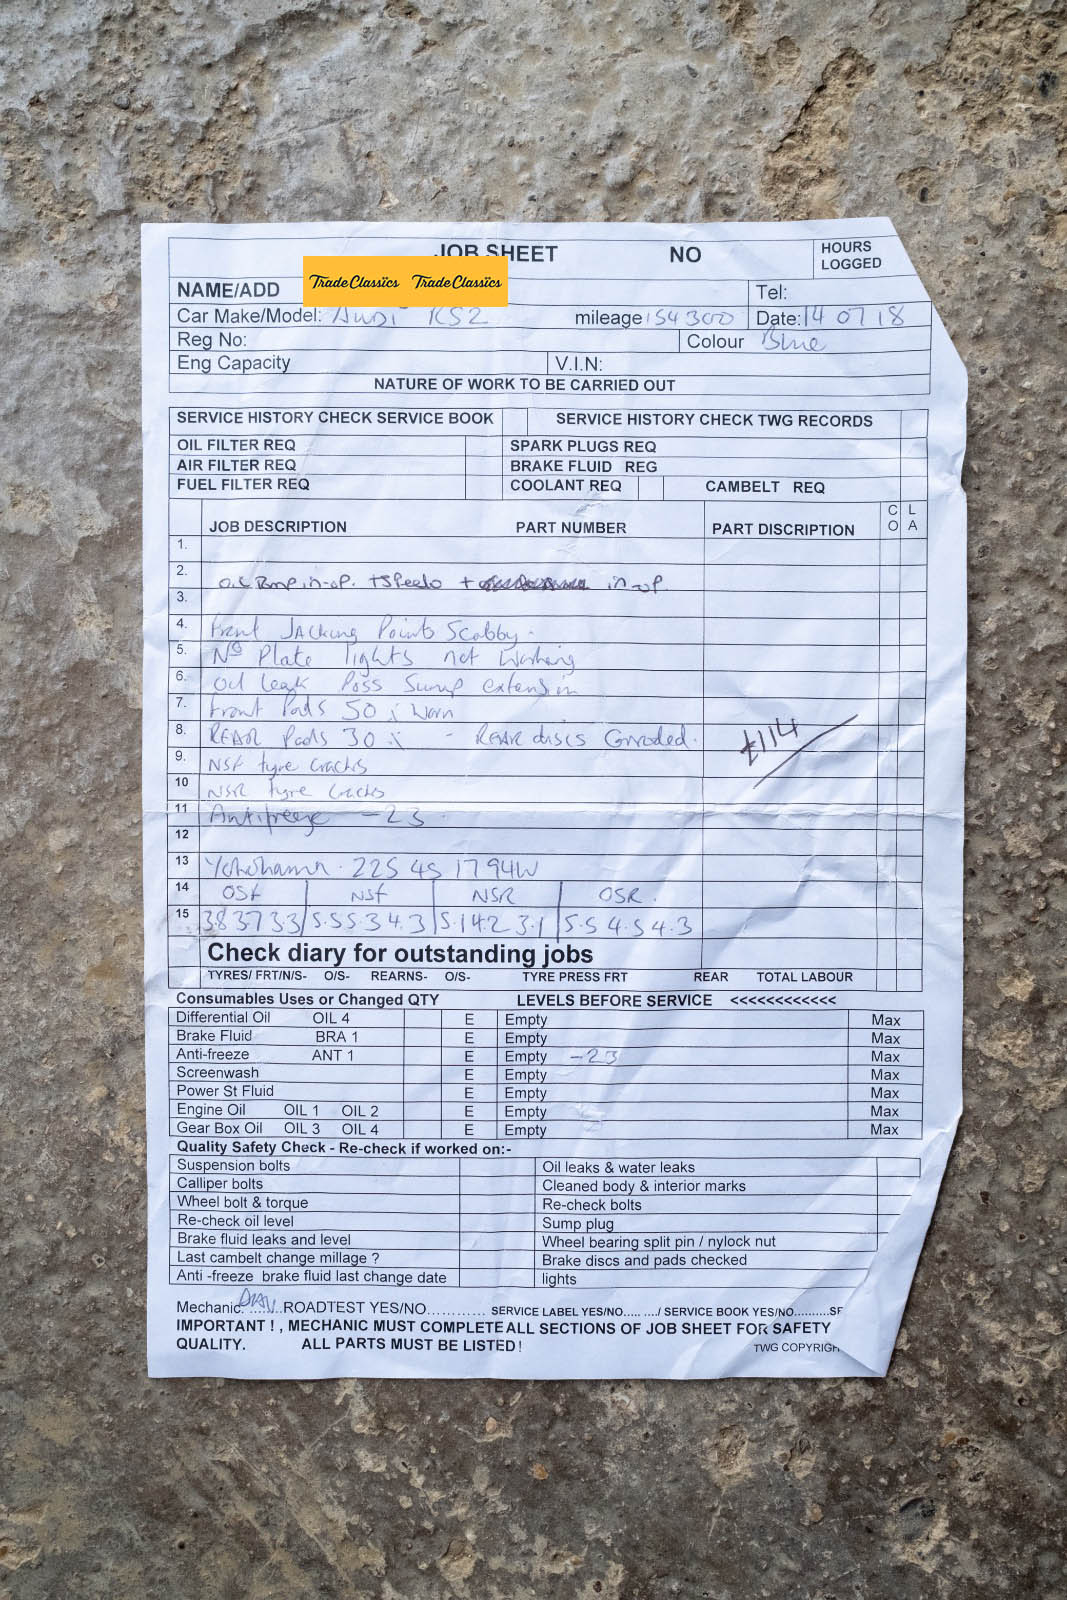 JOB SHEET NO HOURS LOGGED
NAME/ADD TradeClassics TradeClassics Tel:
Car Make/Model: Audi RS2 mileage 154300 Date: 14 07 18
Reg No: Colour Blue
Eng Capacity V.I.N:
NATURE OF WORK TO BE CARRIED OUT
SERVICE HISTORY CHECK SERVICE BOOK SERVICE HISTORY CHECK TWG RECORDS
OIL FILTER REQ SPARK PLUGS REQ
AIR FILTER REQ BRAKE FLUID REG
FUEL FILTER REQ COOLANT REQ CAMBELT REQ
JOB DESCRIPTION PART NUMBER PART DISCRIPTION CO LA
1.
2. in-op. + Speedo + in-op
3.
4. Front Jacking Points Scabby.
5. No Plate lights not working
6. Oil leak Poss Sump extension
7. Front Pads 50% Worn
8. REAR Pads 30% - REAR discs Corroded. £114
9. NSF tyre cracks
10 NSR tyre cracks
11 Antifreeze -23.
12
13 Yokohama. 225 45 17 94W
14 OSF NSF NSR OSR.
15 3.8 3.7 3.3 5.5 5.3 4.3 5.1 4.2 3.1 5.5 4.5 4.3
Check diary for outstanding jobs
TYRES/ FRT/N/S- O/S- REARNS- O/S- TYRE PRESS FRT REAR TOTAL LABOUR
Consumables Uses or Changed QTY LEVELS BEFORE SERVICE <<<<<<<<<<<<
Differential Oil OIL 4 E Empty Max
Brake Fluid BRA 1 E Empty Max
Anti-freeze ANT 1 E Empty -23 Max
Screenwash E Empty Max
Power St Fluid E Empty Max
Engine Oil OIL 1 OIL 2 E Empty Max
Gear Box Oil OIL 3 OIL 4 E Empty Max
Quality Safety Check - Re-check if worked on:-
Suspension bolts Oil leaks & water leaks
Calliper bolts Cleaned body & interior marks
Wheel bolt & torque Re-check bolts
Re-check oil level Sump plug
Brake fluid leaks and level Wheel bearing split pin / nylock nut
Last cambelt change millage ? Brake discs and pads checked
Anti -freeze brake fluid last change date lights
Mechanic. ........ROADTEST YES/NO............ SERVICE LABEL YES/NO..... ..../ SERVICE BOOK YES/NO..........SE
IMPORTANT ! , MECHANIC MUST COMPLETE ALL SECTIONS OF JOB SHEET FOR SAFETY
QUALITY. ALL PARTS MUST BE LISTED! TWG COPYRIGH